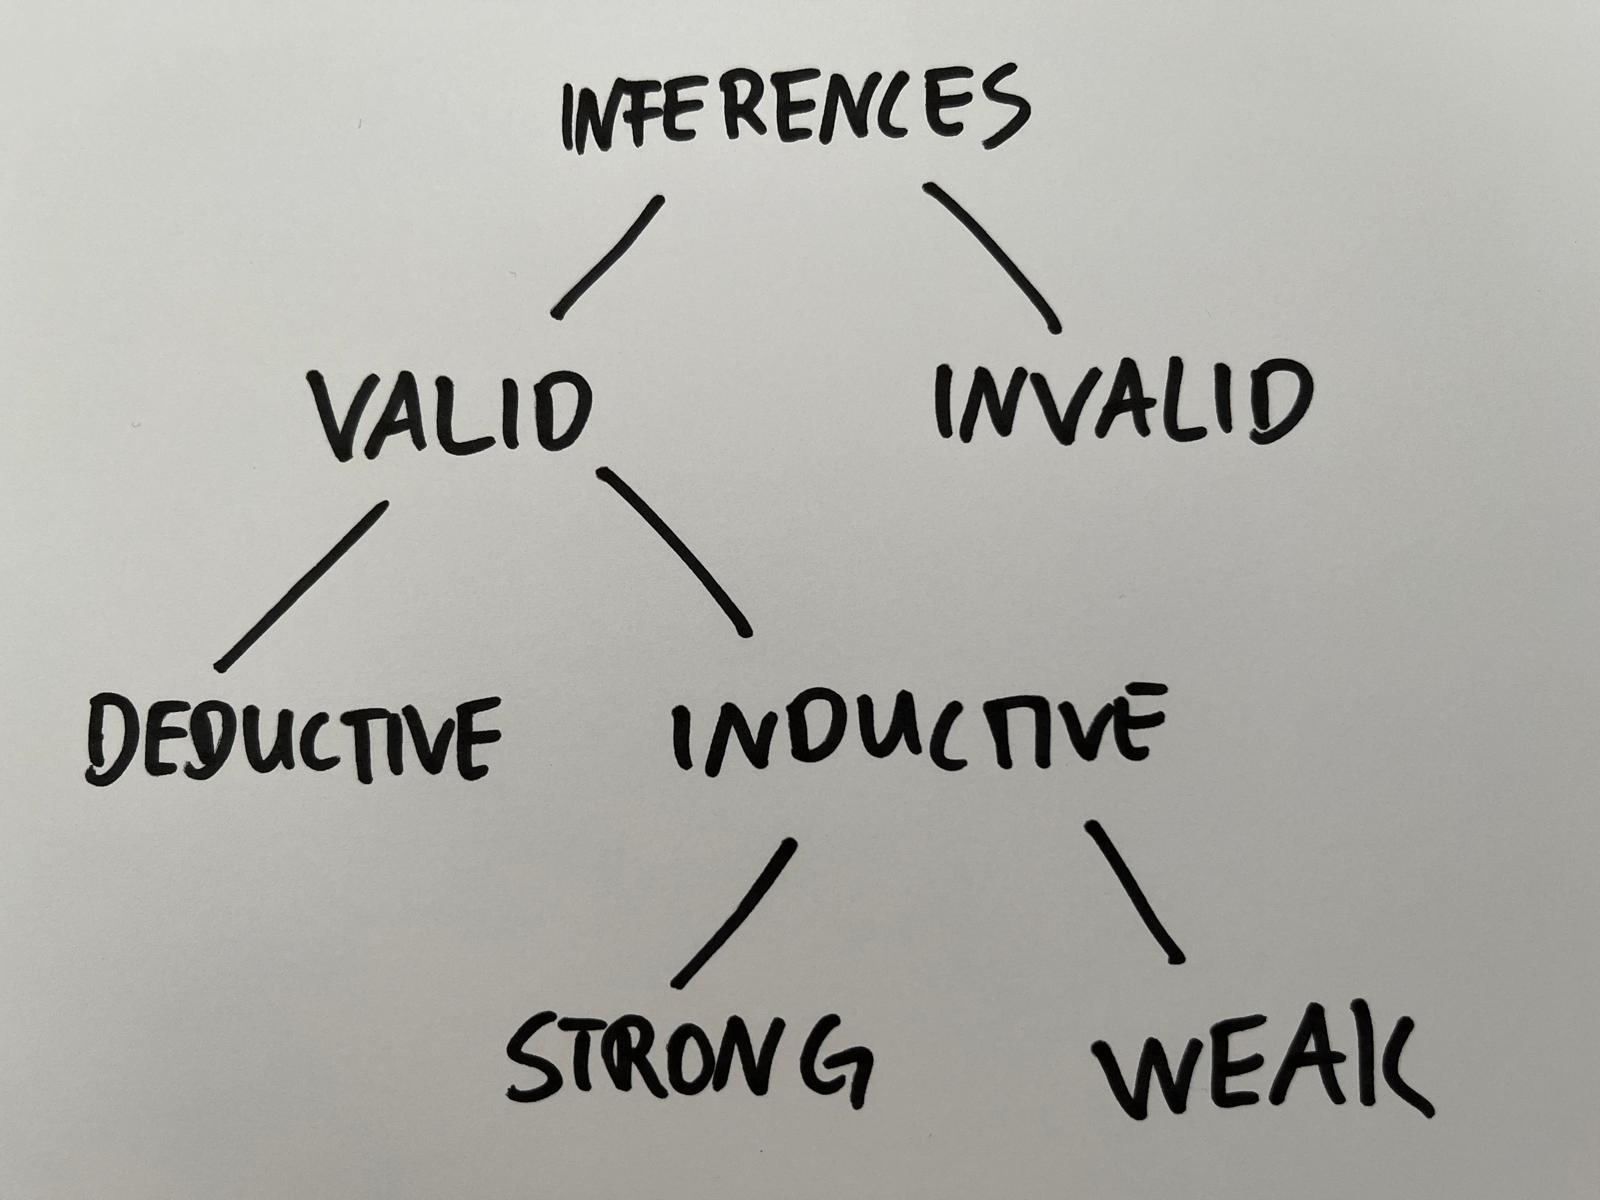 INFERENCES
VALID INVALID
DEDUCTIVE INDUCTIVE
STRONG WEAK